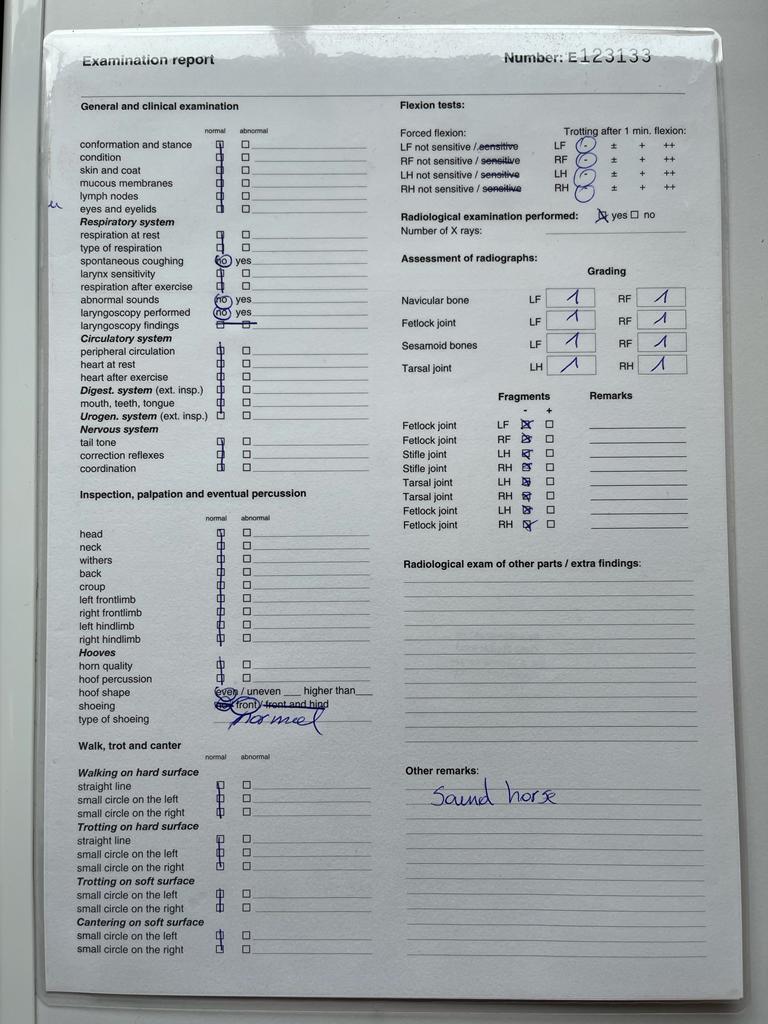 Examination report
Number: E 123133
General and clinical examination
normal abnormal
conformation and stance
condition
skin and coat
mucous membranes
lymph nodes
eyes and eyelids
Respiratory system
respiration at rest
type of respiration
spontaneous coughing no yes
larynx sensitivity
respiration after exercise
abnormal sounds no yes
laryngoscopy performed no yes
laryngoscopy findings
Circulatory system
peripheral circulation
heart at rest
heart after exercise
Digest. system (ext. insp.)
mouth, teeth, tongue
Urogen. system (ext. insp.)
Nervous system
tail tone
correction reflexes
coordination
Inspection, palpation and eventual percussion
normal abnormal
head
neck
withers
back
croup
left frontlimb
right frontlimb
left hindlimb
right hindlimb
Hooves
horn quality
hoof percussion
hoof shape even / uneven ___ higher than___
shoeing front / front and hind
type of shoeing normal
Walk, trot and canter
normal abnormal
Walking on hard surface
straight line
small circle on the left
small circle on the right
Trotting on hard surface
straight line
small circle on the left
small circle on the right
Trotting on soft surface
small circle on the left
small circle on the right
Cantering on soft surface
small circle on the left
small circle on the right
Flexion tests:
Forced flexion: Trotting after 1 min. flexion:
LF not sensitive / sensitive LF - ± + ++
RF not sensitive / sensitive RF - ± + ++
LH not sensitive / sensitive LH - ± + ++
RH not sensitive / sensitive RH - ± + ++
Radiological examination performed: yes no
Number of X rays:
Assessment of radiographs:
Grading
Navicular bone LF 1 RF 1
Fetlock joint LF 1 RF 1
Sesamoid bones LF 1 RF 1
Tarsal joint LH 1 RH 1
Fragments Remarks
- +
Fetlock joint LF
Fetlock joint RF
Stifle joint LH
Stifle joint RH
Tarsal joint LH
Tarsal joint RH
Fetlock joint LH
Fetlock joint RH
Radiological exam of other parts / extra findings:
Other remarks:
Sound horse